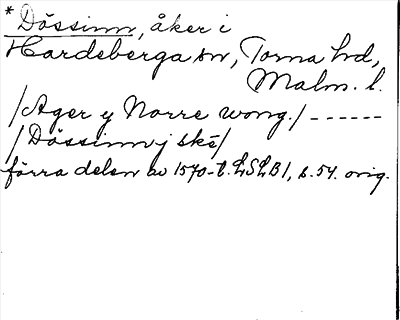 *Dössinn, åker i
Hardeberga sn, Torna hd,
Malm. l.
/Ager y Norre wong./ ------
/Dössinn j ske/
förra delen av 1570-t. LSLB1, s. 54. orig.